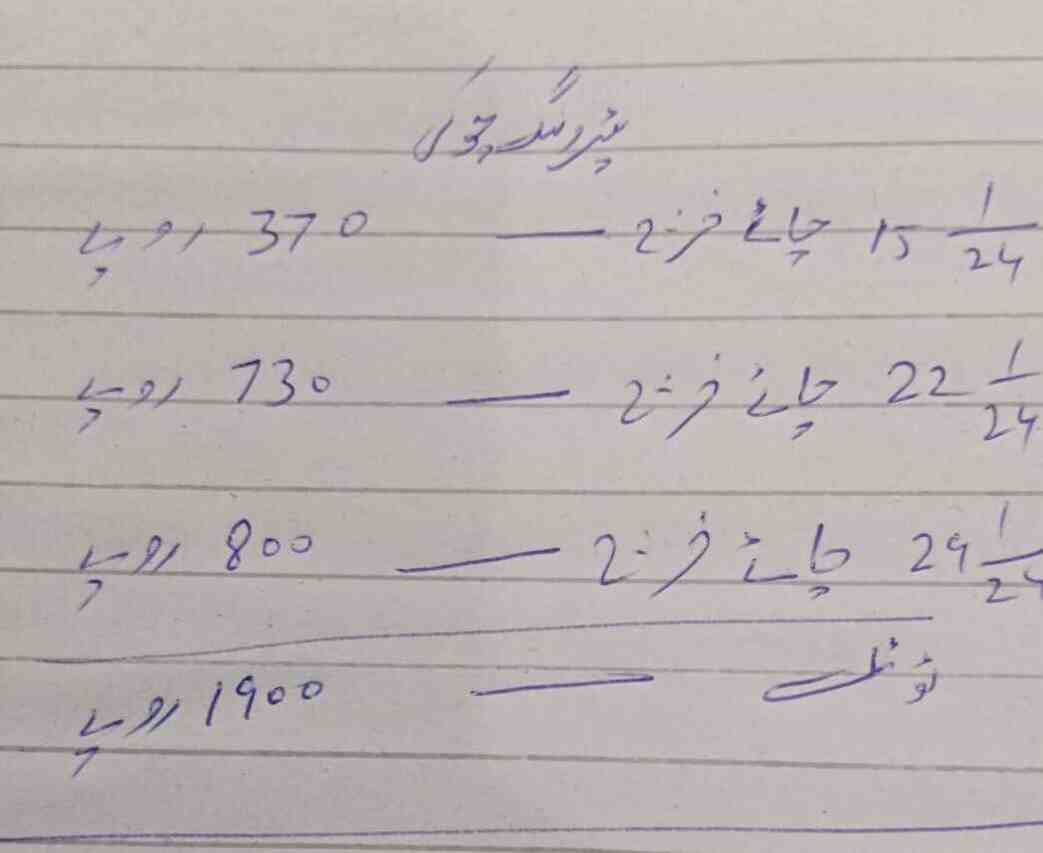 پٹرولنگ چوکی
15 1/24 چائے خرچ — 370 روپے
22 1/24 چائے خرچ — 730 روپے
29 1/24 چائے خرچ — 800 روپے
ٹوٹل — 1900 روپے